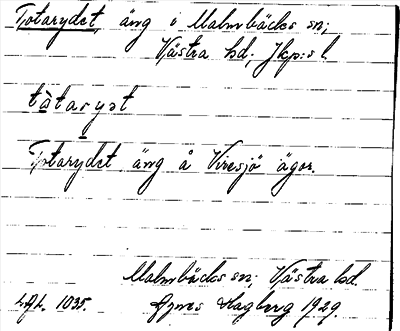 Totarydet, äng i Malmbäcks sn;
Västra hd; Jkp:s l.
tàtaryət
Totarydet, äng å Viresjö ägor.
Malmbäcks sn; Västra hd.
1035. Agnes Hagberg 1929.